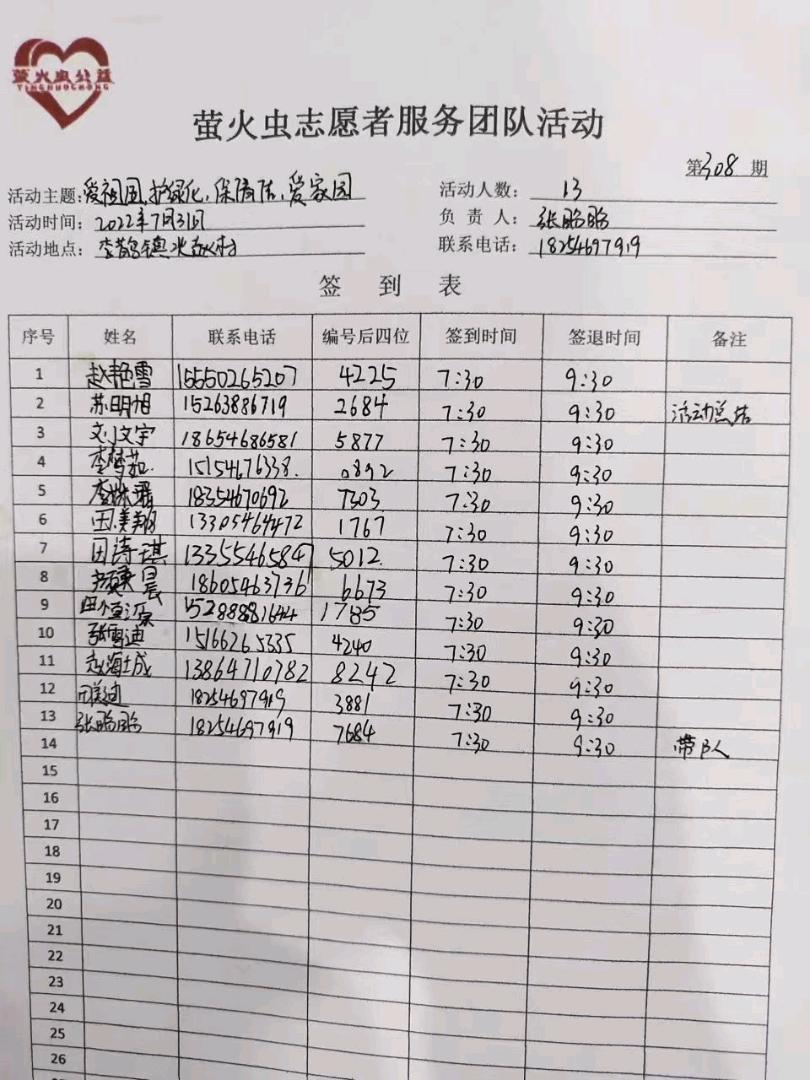 萤火虫公益
YINGHUOCHONG
萤火虫志愿者服务团队活动
第308期
活动主题:爱祖国,护绿化,保清洁,爱家园 活动人数: 13
活动时间:2022年7月31日 负责人:张鹏鹏
活动地点:李鹊镇 村 联系电话:18254697919
签到表
序号 姓名 联系电话 编号后四位 签到时间 签退时间 备注
1 赵艳雪 15550265207 4225 7:30 9:30
2 苏明旭 15263886719 2684 7:30 9:30 活动总结
3 刘文宇 18654686581 5877 7:30 9:30
4 李梦茹 15154676338. 0892 7:30 9:30
5 李 18354670692 7303 7:30 9:30
6 田美翔 13305464472 1767 7:30 9:30
7 田诗琪 13355465847 5012 7:30 9:30
8 晨 18605463736 6673 7:30 9:30
9 田 15288881644 1785 7:30 9:30
10 张雪迪 15166265335 4240 7:30 9:30
11 赵海成 13864710782 8242 7:30 9:30
12 田美迪 18254697919 3881 7:30 9:30
13 张鹏鹏 18254697919 7684 7:30 9:30 带队
14
15
16
17
18
19
20
21
22
23
24
25
26